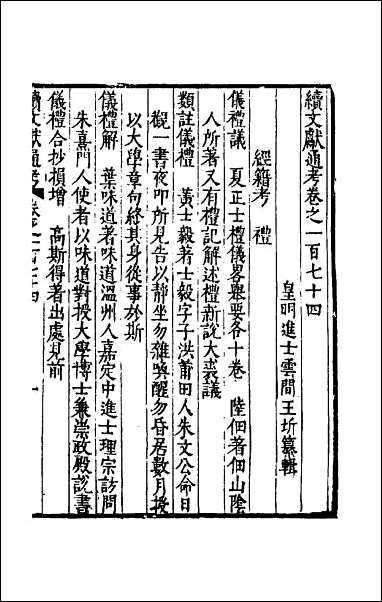 續文獻通考卷之一百七十四
皇明進士雲間王圻纂輯
經籍考 禮
儀禮議 夏正士禮儀畧舉要各十卷 陸佃著佃山陰
人所著又有禮記解述禮新說大裘議
類註儀禮 黃士毅著士毅字子洪莆田人朱文公命日
觀一書夜叩所見告以靜坐勿雜喚醒勿昏居數月授
以大學章句終其身從事於斯
儀禮解 葉味道著味道溫州人嘉定中進士理宗訪問
朱熹門人使者以味道對授大學博士兼崇政殿說書
儀禮合抄損增 高斯得著出處見前